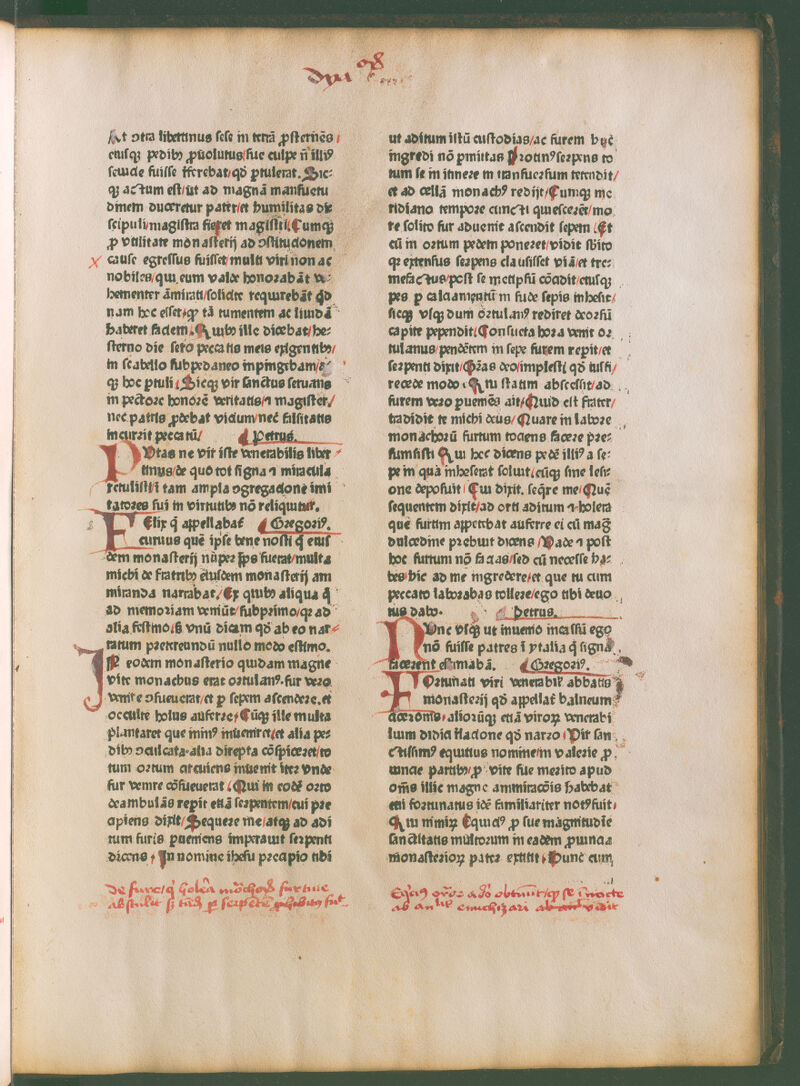 At ɔtra libertinus sese in terrā ꝓsternēs
eiusqꝫ pedibꝰ ꝓuolutus/sue culpe nō illiꝰ
seuicie fuisse rferebat/qd ꝓtulerat. Sic⸗
qꝫ actum est/ut ad magnā mansuetu
dinem duceretur pater/et humilitas di⸗
scipuli/magistra fieret magistri Cumqꝫ
ꝓ vtilitate monasterij ad ɔstitucionem
cause egressus fuisset/multi viri non ac
nobiles/qui eum valde honorabāt ve⸗
hementer āmirati/solicite requirebāt qd
nam hoc esset/qꝙ tā tumentem ac liuidā
haberet faciem. Quibꝰ ille dicebat/he⸗
sterno die sero peccatis meis exigentibꝰ/
in scabello subpedaneo inpingebam/et
qꝫ hoc ptuli Sicqꝫ vir sanctus seruans
in pectore honorē veritatis/⁊ magister/
nec patris ꝓdebat vicium/nec falsitatis
incurrit peccatū/ Petrus.
PVtas ne vir iste venerabilis liber⸗
tinus/de quo tot signa ⁊ miracula
retulisti/ī tam ampla ɔgregacione imi
tatores sui in virtutibꝰ nō reliquitur.
FElix q̄ appellabat̄ Gregoriꝰ.
curuus quē ipse bene nosti q̄ eius
dem monasterij nuper ꝓpꝰ fuerat/multa
michi de fratribꝰ eiusdem monasterij am
miranda narrabat/ Ex quibꝰ aliqua q̄
ad memoriam veniūt/subprimo/qꝫ ad
alia festino/sꝫ vnū dicam qd ab eo nar⸗
ratum pretereundū nullo modo estimo.
IN eodem monasterio quidam magne
vite monachus erat ortulanꝰ. fur vero
venire ɔsueuerat/et ꝑ sepem ascendere. et
occulte holus auferre/ Cūqꝫ ille multa
plantaret que minꝰ inueniret/et alia pe⸗
dibꝰ ɔculcata alia direpta cōspiceret/to
tum ortum circuiens inuenit iter vnde
fur venire cōsueuerat Qui in eodē orto
deambulās reperit etiā serpentem/cui pre
cipiens dixit/Sequere me/atqꝫ ad adi
tum furis ꝑueniens imperauit serpenti
dicens In nomine ihesu precipio tibi
ut aditum istū custodias/ac furem huc
ingredi nō ꝓmittas Protinꝰ serpens to
tum se in itinere in transuersum tetendit/
et ad cellā monachꝰ redijt/Cumqꝫ me
ridiano tempore cuncti quiescerēt/mo
re solito fur aduenit ascendit sepem Et
cū in ortum pedem poneret/vidit sbito
qꝫ extensus serpens clausisset viā/et tre⸗
mefactus/post se metipsū cōcidit/eiusqꝫ
pes ꝑ calciamentū in sude sepis inhesit/
sicqꝫ vsqꝫ dum ortulanꝰ rediret deorsū
capite pependit/Consueta hora venit or
tulanus/pendētem in sepe furem reperit/et
serpenti dixit/Grās deo/implesti qd iussi/
recede modo Qui statim abscessit/ad
furem vero ꝑueniēs ait/Quid est frater/
tradidit te michi deus/Quare in labore
monachorū furtum tociens facere pre⸗
sumsisti Qui hec dicens pedē illiꝰ a se⸗
pe in qua inheserat soluit/eūqꝫ sine lesi⸗
one deposuit Cui dixit. seqre me/Quē
sequentem dixit/ad orti aditum ⁊ holera
que furtim appetebat auferre ei cū mag
dulcedine prebuit dicens /Vade ⁊ post
hoc furtum nō facias/sed cū necesse ha⸗
bes/hic ad me ingredere/et que tu cum
peccato laborabas tollere/ego tibi deuo
tus dabo. Petrus.
NVnc vsqꝫ ut inuenio incassū ego
nō fuisse patres ī ytalia q̄ signa
facerent estimabā. Gregoriꝰ.
FOrtunati viri venerabilꝭ abbatis
monasterij qd appellat̄ balneum
ciceronis/aliorūqꝫ etiā viroꝝ venerabi
lium didici rlacione qd narro Vir san
ctissimꝰ equitius nomine/in valerie ꝓ
uincie partibꝰ/ꝓ vite sue merito apud
om̄s illic magne ammiracōis habebat̄
cui fortunatus idē familiariter notꝰfuit/
Qui nimiꝝ Equitꝰ ꝓ sue magnitudīe
sanctitatis multorum in eadem ꝓuincia
monasterioꝝ pater extitit Hunc cum
De fure/q holera mōchoꝝ furtiue
abstulit sꝫ tādē ꝑ serpētē ꝓhibitꝰ fuit